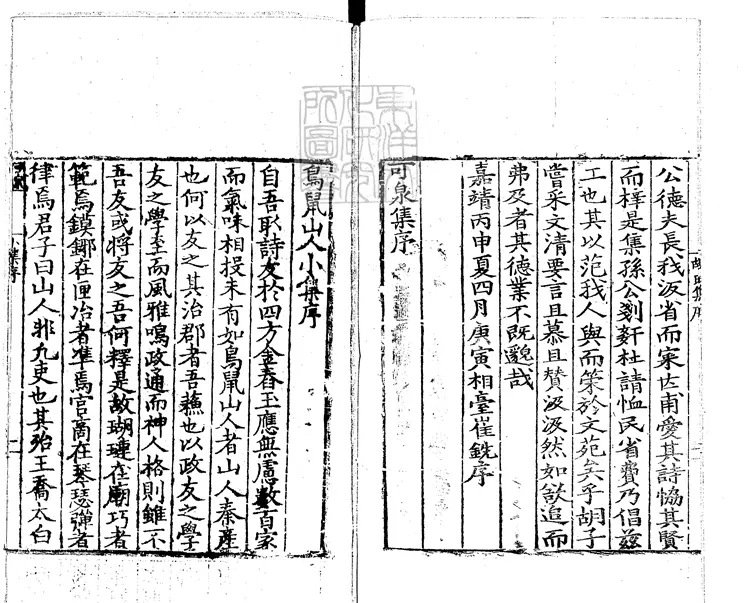 公德夫長我汲省而寀左甫愛其詩恊其賢
而梓是集孫公剡姧杜請恤民省費乃倡茲
工也其以范我人與而策於文苑矣乎胡子
嘗采文清要言且慕且贊汲汲然如欲追而
弗及者其德業不既邈哉
嘉靖丙申夏四月庚寅相臺崔銑序
可泉集序
鳥鼠山人小集序
自吾取詩友於四方金舂玉應無慮數百家
而氣味相投未有如鳥鼠山人者山人秦產
也何以友之其治郡者吾蘓也以政友之學
友之學至而風雅鳴政通而神人格則雖不
吾友或將友之吾何釋是故瑚璉在廟巧者
範焉鏌鎁在匣冶者凖焉宮商在琴瑟彈者
律焉君子曰山人非九吏也其殆王喬太白
小集序
二
東洋文化研究所圖